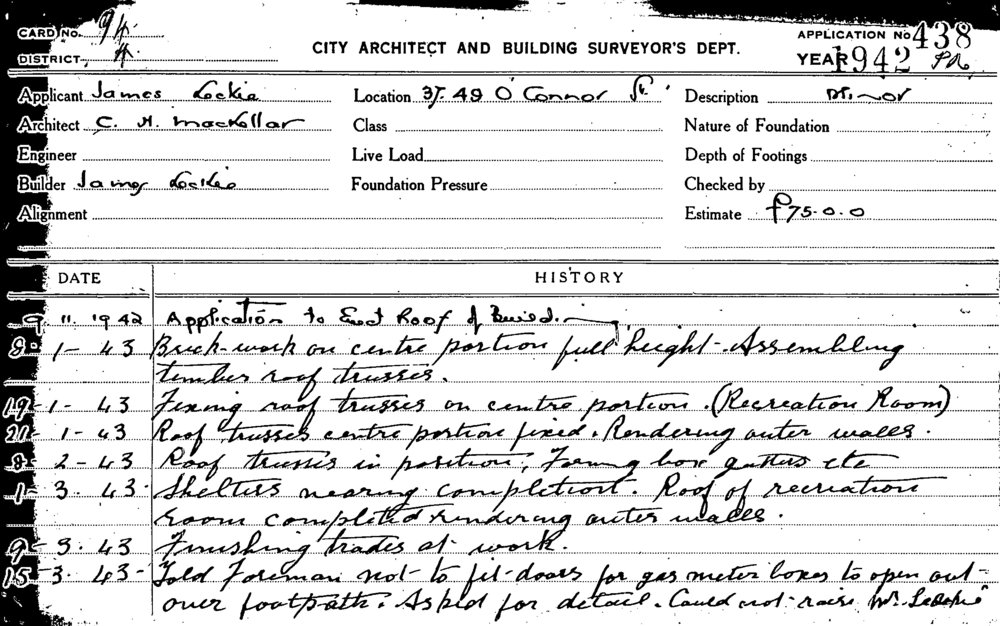 CARD NO. 94
DISTRICT 4
CITY ARCHITECT AND BUILDING SURVEYOR'S DEPT.
APPLICATION No 438
YEAR 1942
Applicant James Leckie Location 37.49 O'Connor St. Description Minor
Architect C. H. MacKellar Class Nature of Foundation
Engineer Live Load Depth of Footings
Builder James Leckie Foundation Pressure Checked by
Alignment Estimate £75-0-0
DATE HISTORY
9. 11. 1942 Application to Erect Roof of Building
8- 1- 43 Brick-work on centre portion full height - Assembling
timber roof trusses.
19- 1- 43 Fixing roof trusses on centre portion. (Recreation Room)
21- 1- 43 Roof trusses centre portion fixed. Rendering outer walls.
8- 2- 43 Roof trusses in position, Forming box gutters etc
1- 3. 43. Shelters nearing completion. Roof of recreation
room completed rendering outer walls.
9- 3. 43 Finishing trades at work.
15- 3. 43- Told Foreman not to fit doors for gas meter boxes to open out-
over footpath. Asked for detail. Could not raise Mr